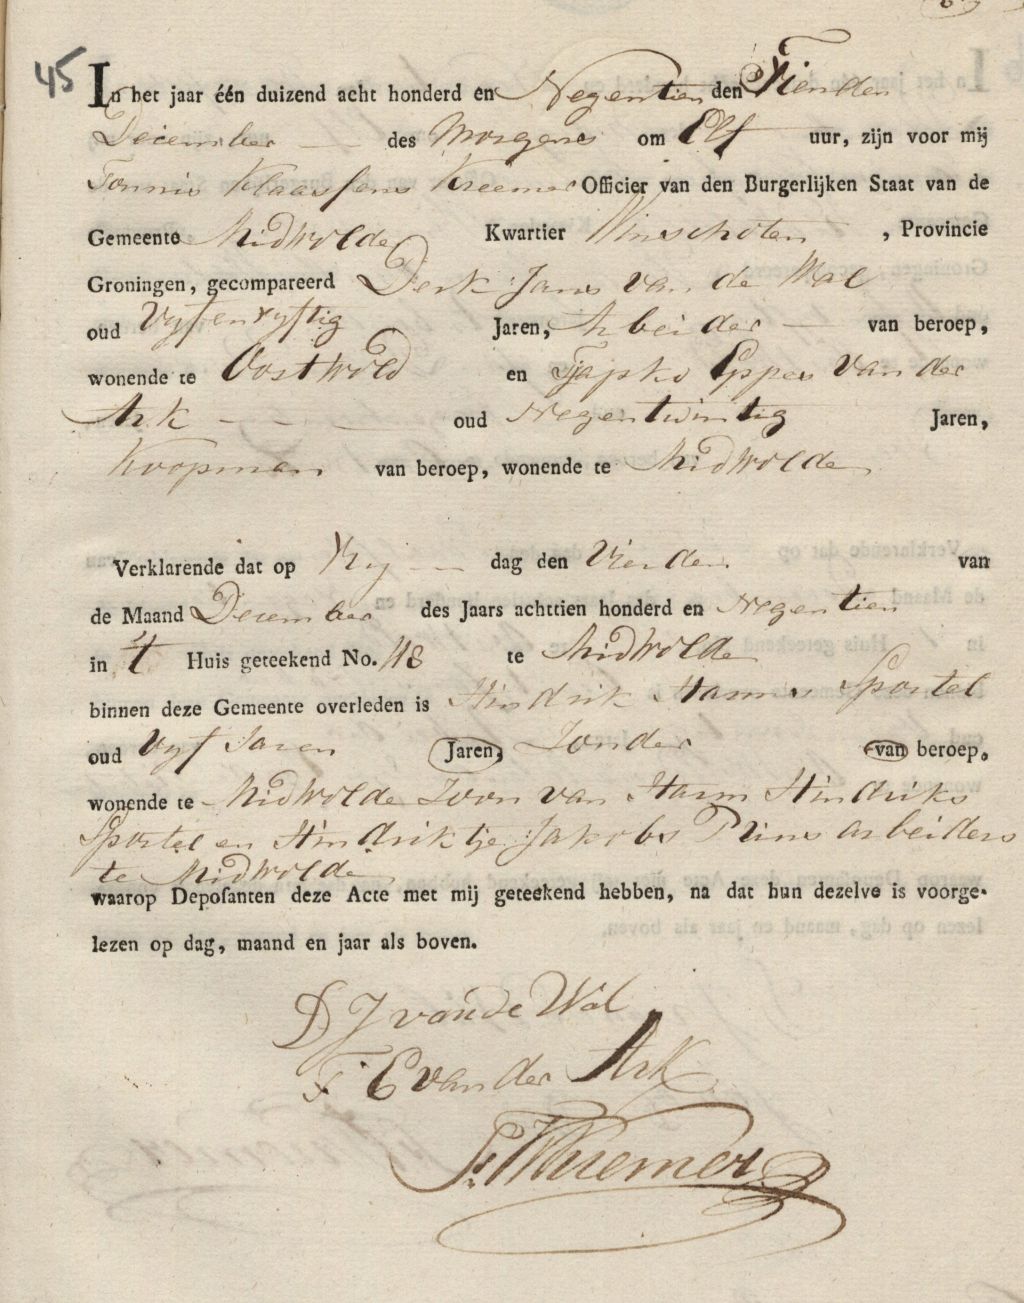 45
In het jaar één duizend acht honderd en Negentien den Tienden
December des Morgens om Elf uur, zijn voor mij
Tonnis Klaassens Kremer Officier van den Burgerlijken Staat van de
Gemeente Midwolde Kwartier Winschoten , Provincie
Groningen, gecompareerd Derk Jans van de Wal
oud Vyfenvyftig Jaren, Arbeider van beroep,
wonende te Oostwold en Tjapko Eppes van der
Ark oud Negentwintig Jaren,
Koopman van beroep, wonende te Midwolde
Verklarende dat op Vry dag den Vierden van
de Maand December des Jaars achttien honderd en Negentien
in 't Huis geteekend No. 48 te Midwolde
binnen deze Gemeente overleden is Hindrik Harms Sportel
oud Vyf Jaren Jaren, Zonder van beroep,
wonende te Midwolde Zoon van Harm Hindriks
Sportel en Hindriktje Jakobs Prins arbeiders
te Midwolde
waarop Deposanten deze Acte met mij geteekend hebben, na dat hun dezelve is voorge-
lezen op dag, maand en jaar als boven.
D J van de Wal
T. E van der Ark
T. K Kremer